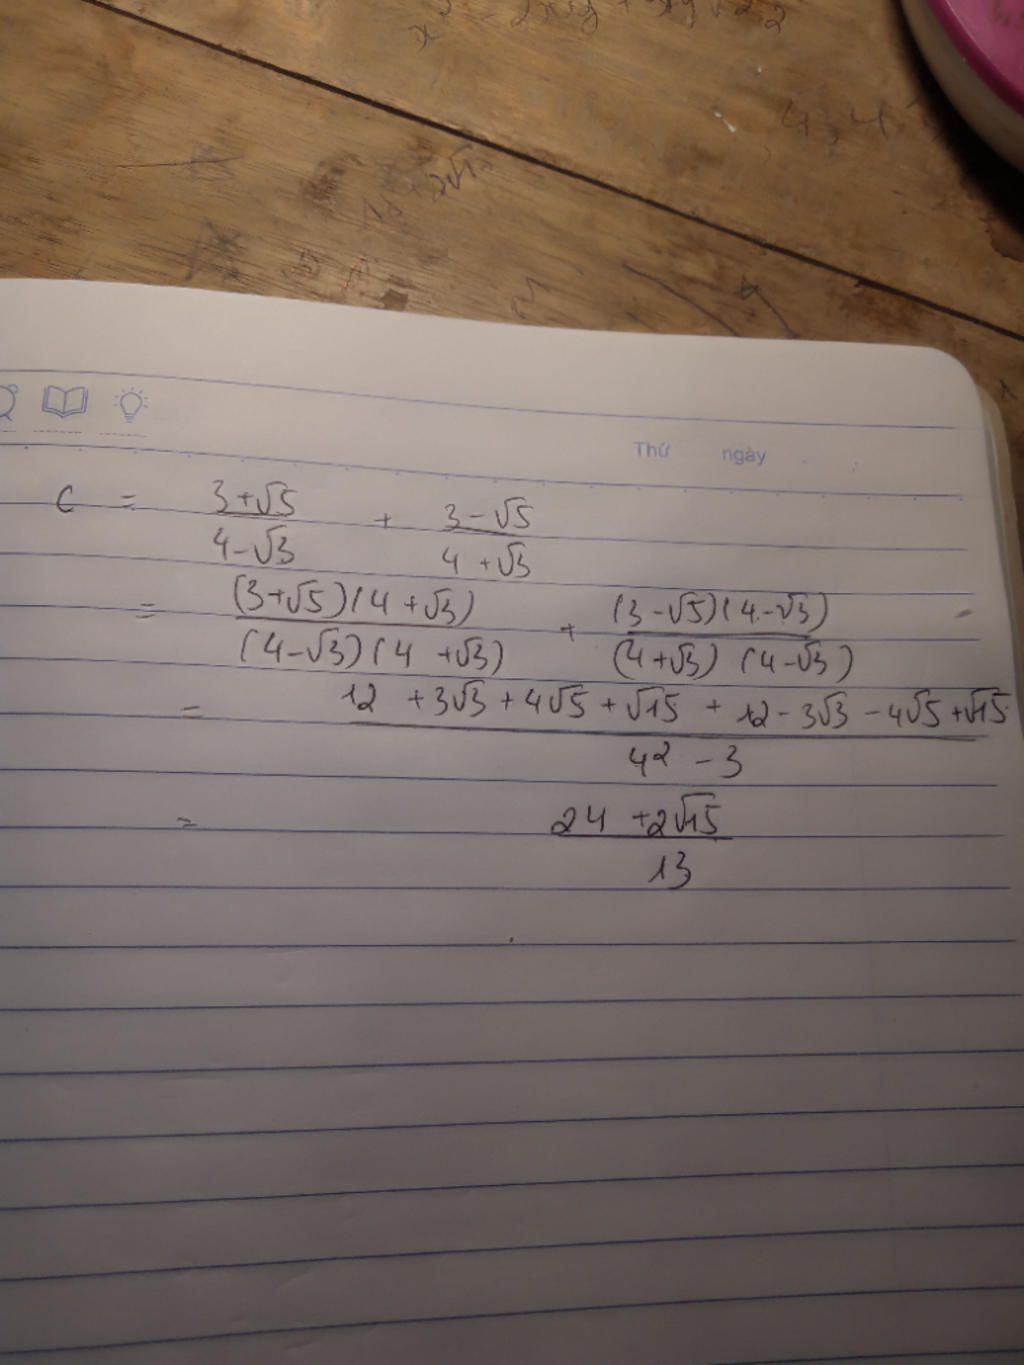 Thứ ngày
C = (3+√5)/(4-√3) + (3-√5)/(4+√3)
= ((3+√5)(4+√3))/((4-√3)(4+√3)) + ((3-√5)(4-√3))/((4+√3)(4-√3))
= (12+3√3+4√5+√15+12-3√3-4√5+√15)/(4²-3)
= (24+2√15)/13